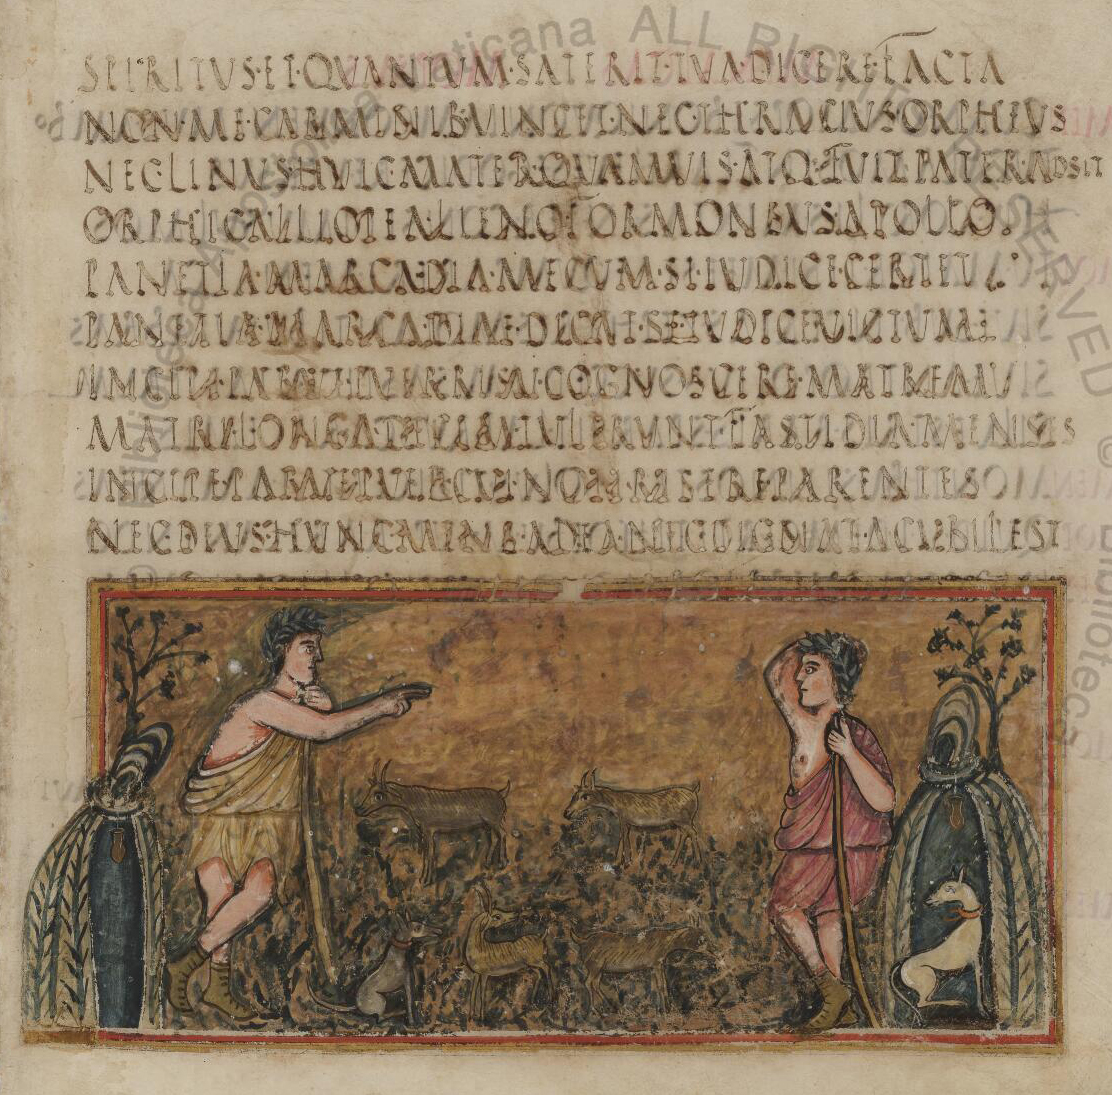 SPIRITUS·ET·QUANTUM·SATERIT·TUADICERE·FACTA
NON·ME·CARMINIB·UINCET·NEC·THRACIUS·ORPHEUS
NEC·LINUS·HUIC·MATER·QUAMUIS·ATQ·FUIT·PATER·ADSIT
ORPHI·CALLOPEA·LINO·FORMONSUS·APOLLO·
PAN·ETIAM·ARCADIA·MECUM·SI·IUDICE·CERTET
PAN·ETIAM·ARCADIAE·DICAT·SE·IUDICE·UICTUM
INCIPE·PARUE·PUER·RISU·COGNOSCERE·MATREM
MATRI·LONGA·DECEM·TULERUNT·FASTIDIA·MENSES
INCIPE·PARUE·PUER·CUI·NON·RISERE·PARENTES
NEC·DEUS·HUNC·MENSA·DEA·NEC·DIGNATA·CUBILEST
© Biblioteca Apostolica Vaticana ALL RIGHTS RESERVED © Biblioteca